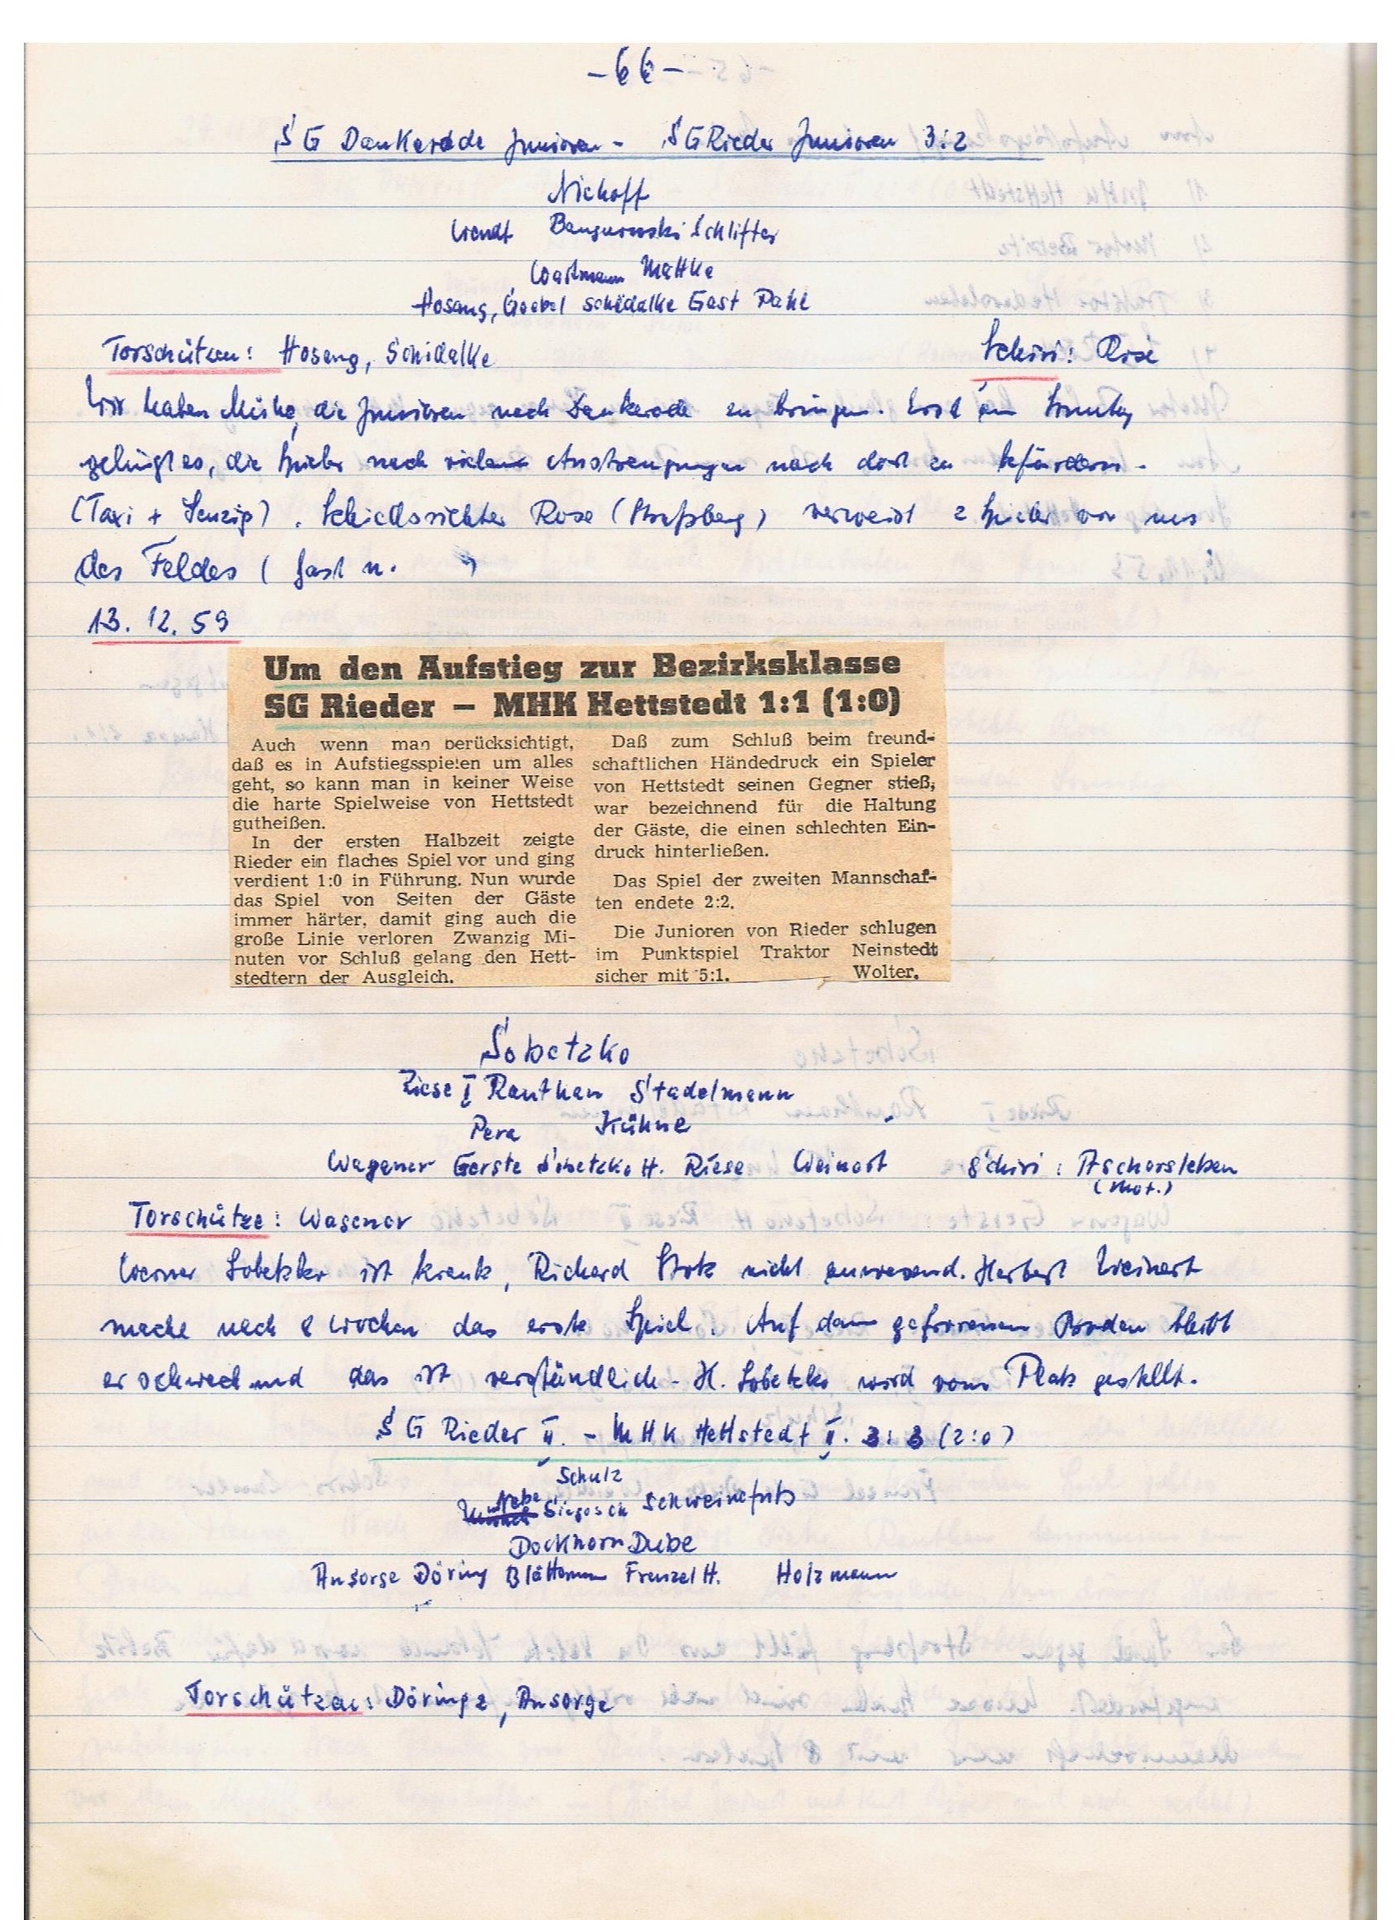 -66-
SG Dankerode Junioren - SG Rieder Junioren 3:2
Niehoff
Wendt Bangurowski Schlifter
Wortmann Mattke
Hosang, Goebel Schidalke Gast Pahl
Torschützen: Hosang, Schidalke Schiri: Rose
Wir haben Mühe, die Junioren nach Dankerode zu bringen. Erst am Sonntag
gelingt es, die Spieler nach vielen Anstrengungen nach dort zu befördern.
(Taxi + Lenzig). Schiedsrichter Rose (Straßberg) verweist 2 Spieler von uns
des Feldes (Gast u. )
13. 12. 59
Um den Aufstieg zur Bezirksklasse
SG Rieder — MHK Hettstedt 1:1 (1:0)
Auch wenn man berücksichtigt,
daß es in Aufstiegsspielen um alles
geht, so kann man in keiner Weise
die harte Spielweise von Hettstedt
gutheißen.
In der ersten Halbzeit zeigte
Rieder ein flaches Spiel vor und ging
verdient 1:0 in Führung. Nun wurde
das Spiel von Seiten der Gäste
immer härter, damit ging auch die
große Linie verloren Zwanzig Mi-
nuten vor Schluß gelang den Hett-
stedtern der Ausgleich.
Daß zum Schluß beim freund-
schaftlichen Händedruck ein Spieler
von Hettstedt seinen Gegner stieß,
war bezeichnend für die Haltung
der Gäste, die einen schlechten Ein-
druck hinterließen.
Das Spiel der zweiten Mannschaf-
ten endete 2:2.
Die Junioren von Rieder schlugen
im Punktspiel Traktor Neinstedt
sicher mit 5:1. Wolter.
Sobetzko
Riese I Rauthan Stadelmann
Pera Kühne
Wagener Gerste Sobetzko H. Riese Weinert Schiri: Aschersleben
(Mot.)
Torschütze: Wagener
Werner Sobetzko ist krank, Richard Stotz nicht anwesend. Herbert Weinert
macht nach 8 Wochen das erste Spiel. Auf dem gefrorenen Boden bleibt
er schwach und das ist verständlich - H. Sobetzko wird vom Platz gestellt.
SG Rieder II. - MHK Hettstedt II. 3:3 (2:0)
Schulz
Nebe Siegosch Schweinefuß
Dockhorn Dube
Ansorge Döring Blättermann Frenzel H. Holzmann
Torschützen: Döring 2, Ansorge